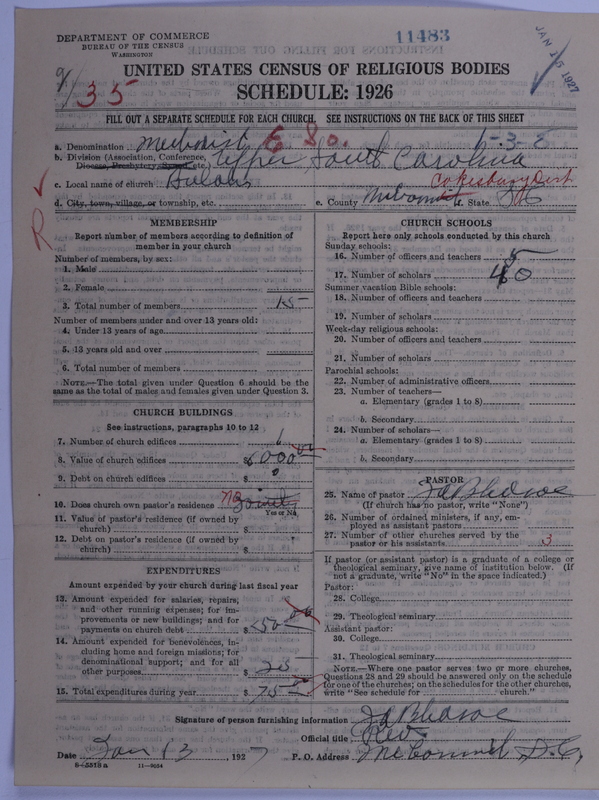 DEPARTMENT OF COMMERCE
BUREAU OF THE CENSUS
WASHINGTON
11483
JAN 15 1927
UNITED STATES CENSUS OF RELIGIOUS BODIES
SCHEDULE: 1926
9/35
FILL OUT A SEPARATE SCHEDULE FOR EACH CHURCH. SEE INSTRUCTIONS ON THE BACK OF THIS SHEET
a. Denomination Methodist E. So. 1-3-5
b. Division (Association, Conference, Diocese, Presbytery, Synod, etc.) Upper South Carolina
c. Local name of church Cokesbury Dist
d. City, town, village, or township, etc. e. County McCormick f. State SC
R
MEMBERSHIP
Report number of members according to definition of member in your church
Number of members, by sex:
1. Male
2. Female
3. Total number of members 15
Number of members under and over 13 years old:
4. Under 13 years of age
5. 13 years old and over
6. Total number of members
NOTE.—The total given under Question 6 should be the same as the total of males and females given under Question 3.
CHURCH BUILDINGS
See instructions, paragraphs 10 to 12
7. Number of church edifices 1
8. Value of church edifices $6000 00
9. Debt on church edifices $ 0
10. Does church own pastor's residence no Jointly
Yes or No
11. Value of pastor's residence (if owned by church) $
12. Debt on pastor's residence (if owned by church) $
EXPENDITURES
Amount expended by your church during last fiscal year
13. Amount expended for salaries, repairs, and other running expenses; for improvements or new buildings; and for payments on church debt $ 50 00
14. Amount expended for benevolences, including home and foreign missions; for denominational support; and for all other purposes $ 25
15. Total expenditures during year $ 75
CHURCH SCHOOLS
Report here only schools conducted by this church
Sunday schools:
16. Number of officers and teachers 5
17. Number of scholars 40
Summer vacation Bible schools:
18. Number of officers and teachers
19. Number of scholars
Week-day religious schools:
20. Number of officers and teachers
21. Number of scholars
Parochial schools:
22. Number of administrative officers
23. Number of teachers—
a. Elementary (grades 1 to 8)
b. Secondary
24. Number of scholars—
a. Elementary (grades 1 to 8)
b. Secondary
PASTOR
25. Name of pastor
(If church has no pastor, write "None")
26. Number of ordained ministers, if any, employed as assistant pastors
27. Number of other churches served by the pastor or his assistants 3
If pastor (or assistant pastor) is a graduate of a college or theological seminary, give name of institution below. (If not a graduate, write "No" in the space indicated.)
Pastor:
28. College
29. Theological seminary
Assistant pastor:
30. College
31. Theological seminary
NOTE.—Where one pastor serves two or more churches, Questions 28 and 29 should be answered only on the schedule for one of the churches; on the schedules for the other churches, write "See schedule for church."
Signature of person furnishing information
Official title Rev.
Date Jan 13, 1927 P. O. Address McCormick S.C.
8-5518 a 11-9034